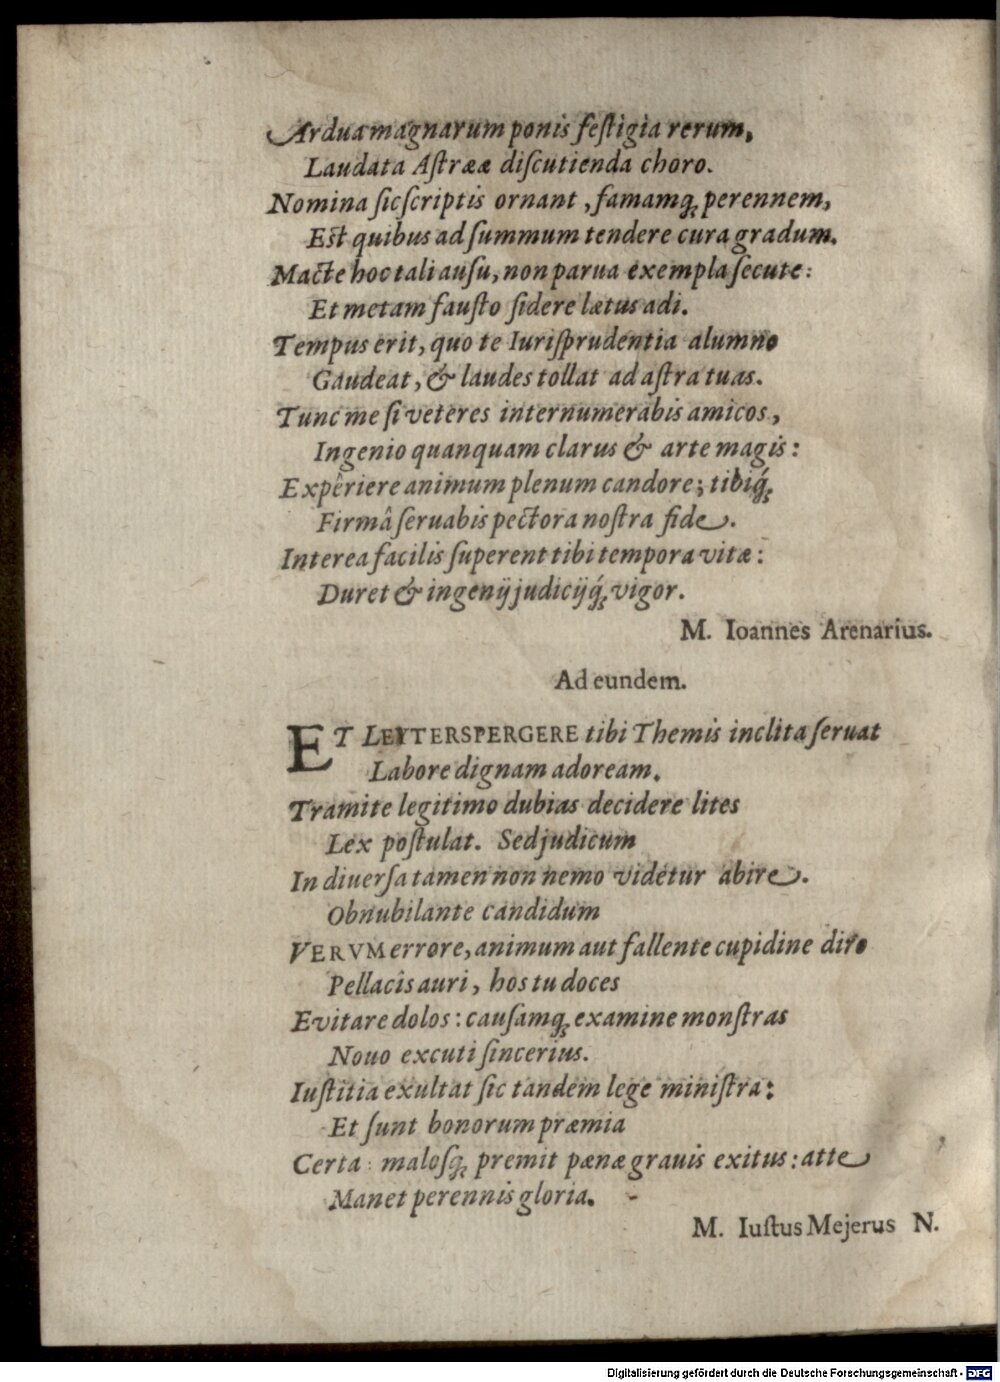 Ardua magnarum ponis feſtigia rerum,
Laudata Aſtrææ diſcutienda choro.
Nomina ſic ſcriptis ornant, famamq́ꝫ perennem,
Eſt quibus ad ſummum tendere cura gradum.
Macte hoc tali auſu, non parua exempla ſecute:
Et metam fauſto ſidere lætus adi.
Tempus erit, quo te Iuriſprudentia alumno
Gaudeat, & laudes tollat ad aſtra tuas.
Tunc me ſi veteres internumerabis amicos,
Ingenio quanquam clarus & arte magis:
Expêriere animum plenum candore; tibiq́ꝫ
Firmâ ſeruabis pectora noſtra fide.
Interea facilis ſuperent tibi tempora vitæ:
Duret & ingenij judicijq́ꝫ vigor.
M. Ioannes Arenarius.
Ad eundem.
ET LEYTERSPERGERE tibi Themis inclita ſeruat
Labore dignam adoream.
Tramite legitimo dubias decidere lites
Lex poſtulat. Sed judicum
In diuerſa tamen non nemo videtur abire.
Obnubilante candidum
VERVM errore, animum aut fallente cupidine diro
Pellacis auri, hos tu doces
Evitare dolos: cauſamqꝫ examine monſtras
Nouo excuti ſincerius.
Iuſtitia exultat ſic tandem lege miniſtra:
Et ſunt bonorum præmia
Certa: maloſqꝫ premit pænæ grauis exitus: at te
Manet perennis gloria.
M. Iuſtus Mejerus N.
Digitalisierung gefördert durch die Deutsche Forschungsgemeinschaft - DFG